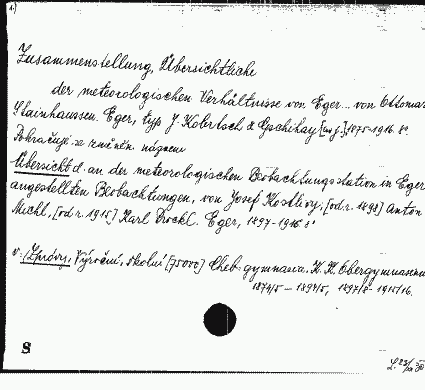 Zusammenstellung, Übersichtliche
der meteorologischen Verhältnisse von Eger... von Ottomar
Stainhaussen. Eger, typ J. Kobrtsch & Gschihay [aj.], 1875-1916. 8°.
Pokračuje se změněn. názvem
Übersicht d. an der meteorologischen Beobachtungsstation in Eger
angestellten Beobachtungen, von Josef Kostlivy, [od r. 1898] Anton
Michl, [od r. 1915] Karl Drockl. Eger, 1897-1916 8°
v: [Zprávy, Výroční, školní [75000] Cheb-gymnasia. K. K. Obergymnasium
1874/5 - 1894/5, 1897/8 - 1915/16.
S